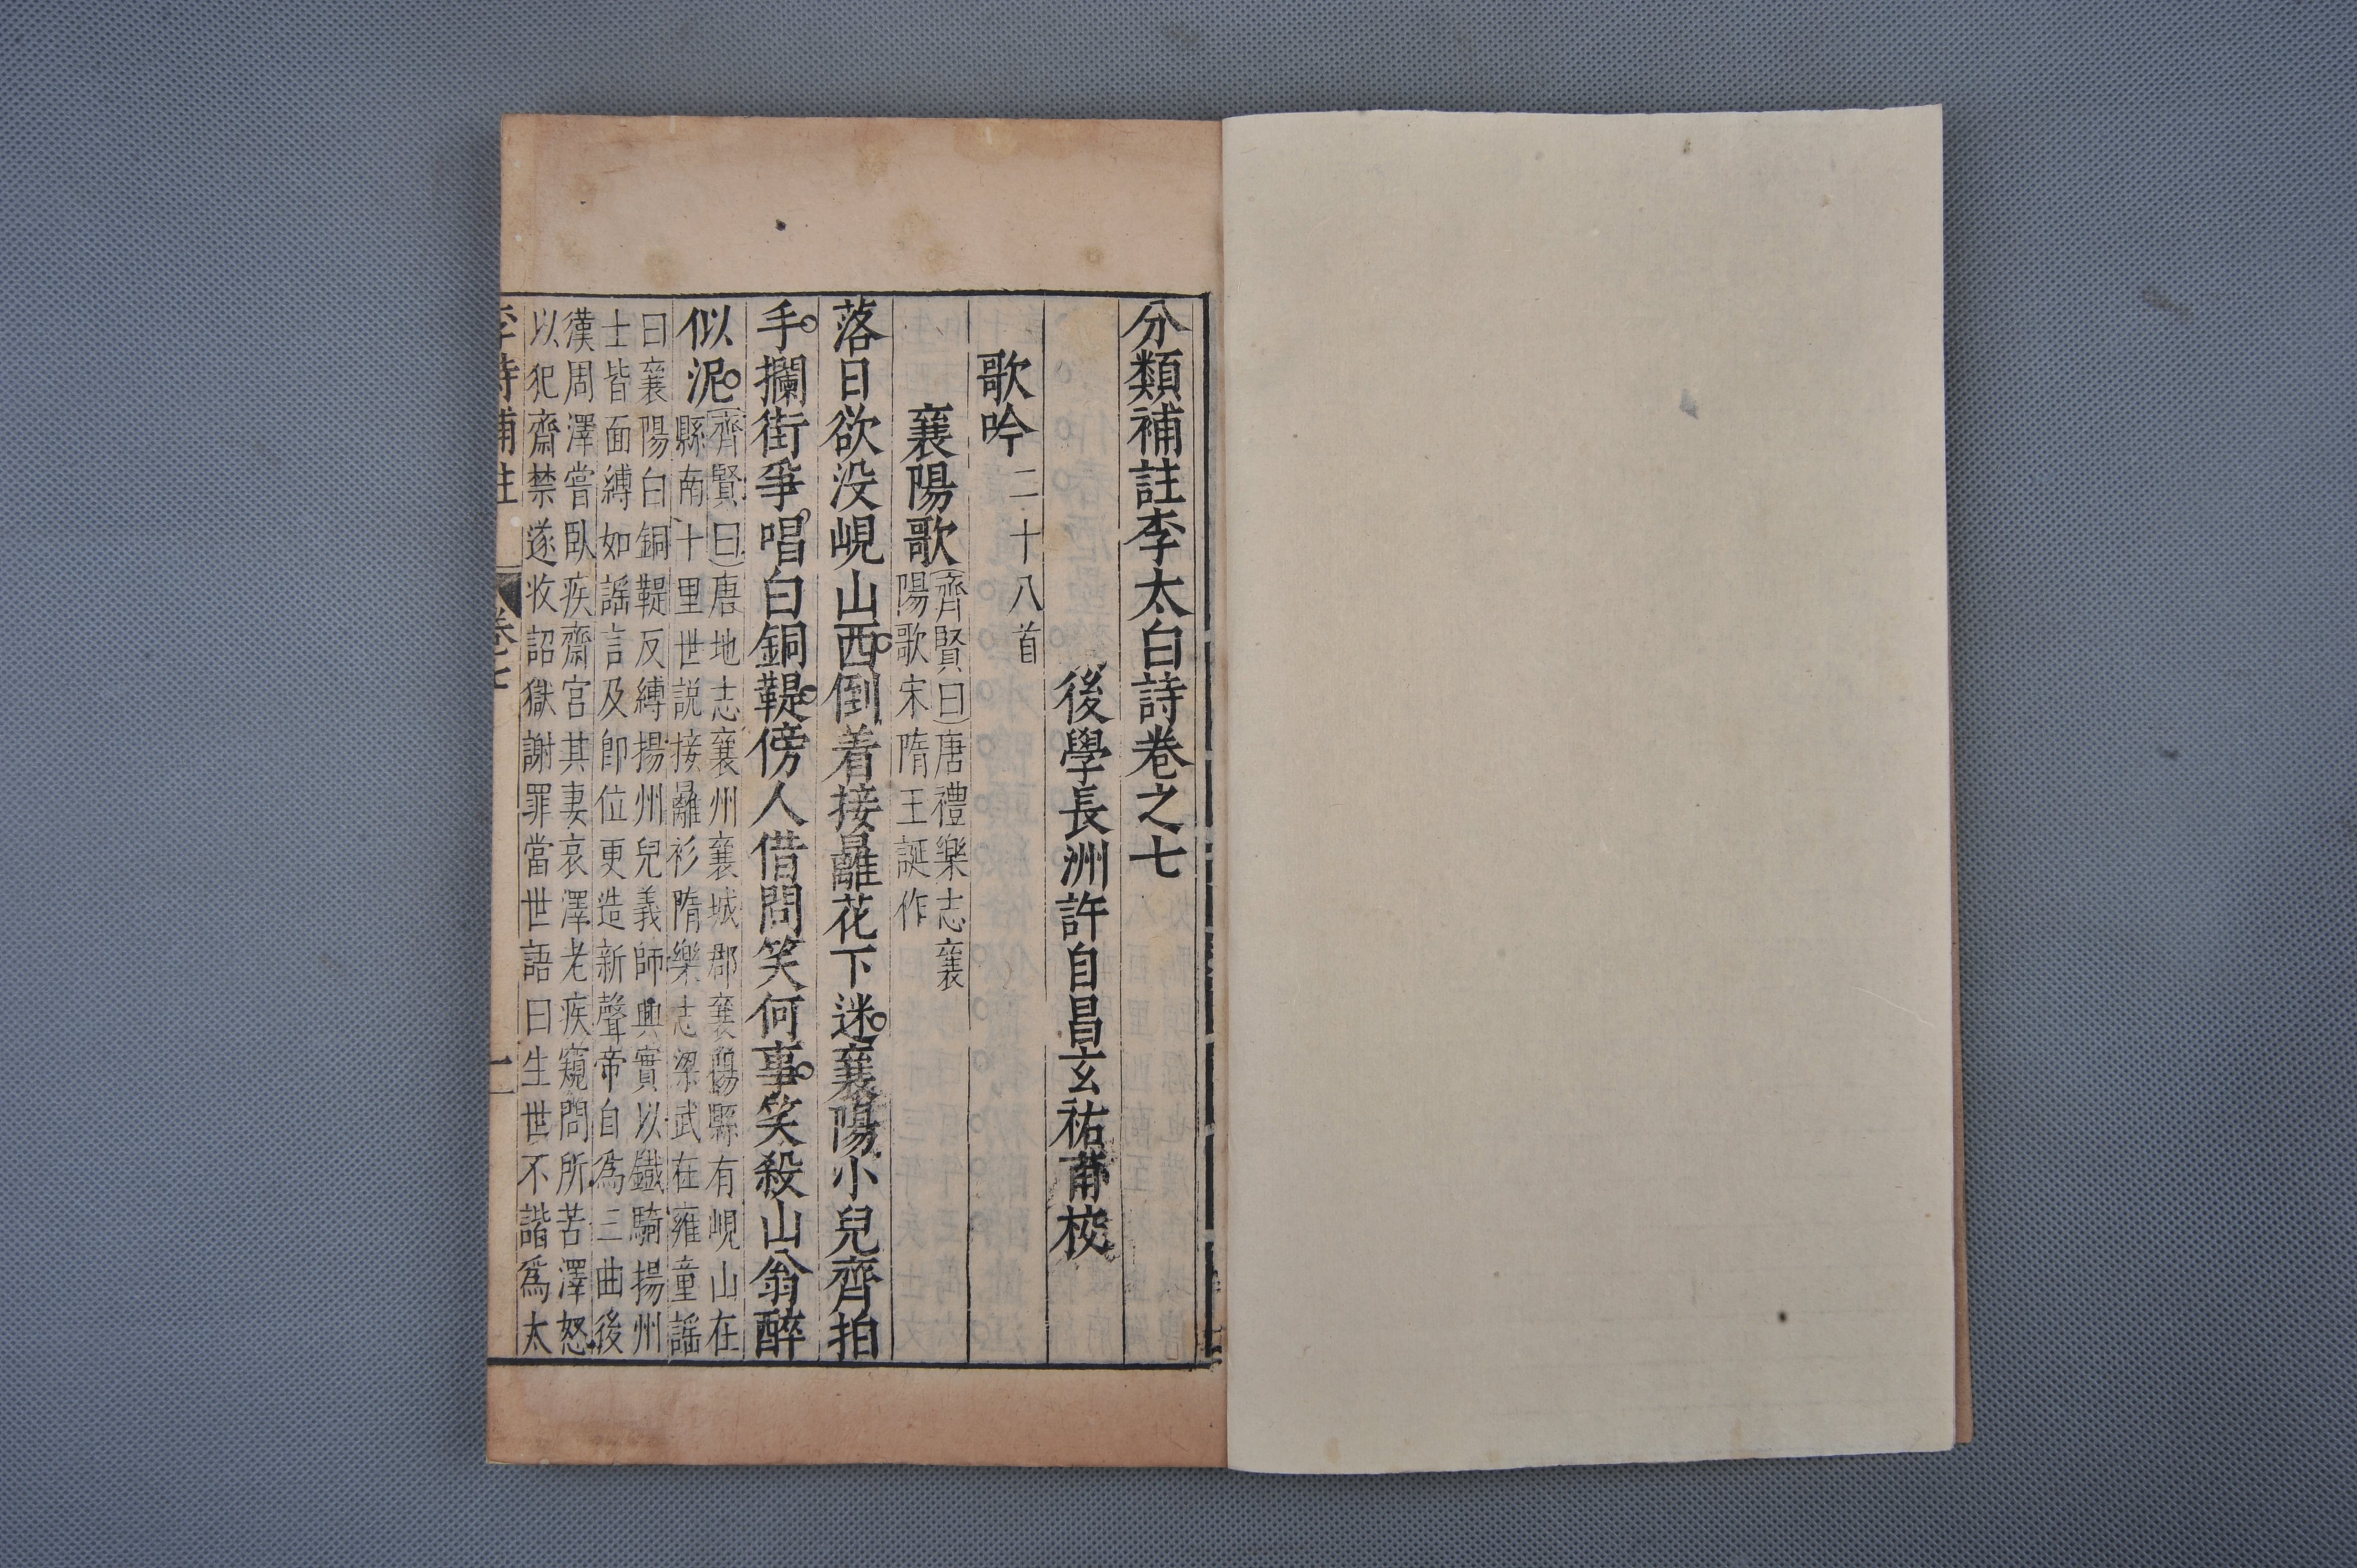 分類補註李太白詩卷之七
後學長洲許自昌玄祐甫校
歌吟二十八首
襄陽歌
齊賢曰唐禮樂志襄
陽歌宋隋王誕作
落日欲没峴山西倒着接䍦花下迷襄陽小兒齊拍
手攔街爭唱白銅鞮傍人借問笑何事笑殺山翁醉
似泥
齊賢曰唐地志襄州襄城郡襄陽縣有峴山在
縣南十里世説接䍦衫隋樂志梁武在雍童謡
曰襄陽白銅鞮反縛揚州兒義師興實以鐵騎揚州
士皆面縛如謡言及即位更造新聲帝自爲三曲後
漢周澤嘗臥疾齋宮其妻哀澤老疾窺問所苦澤怒
以犯齋禁遂收詔獄謝罪當世語曰生世不諧爲太
李詩補註 卷七 一